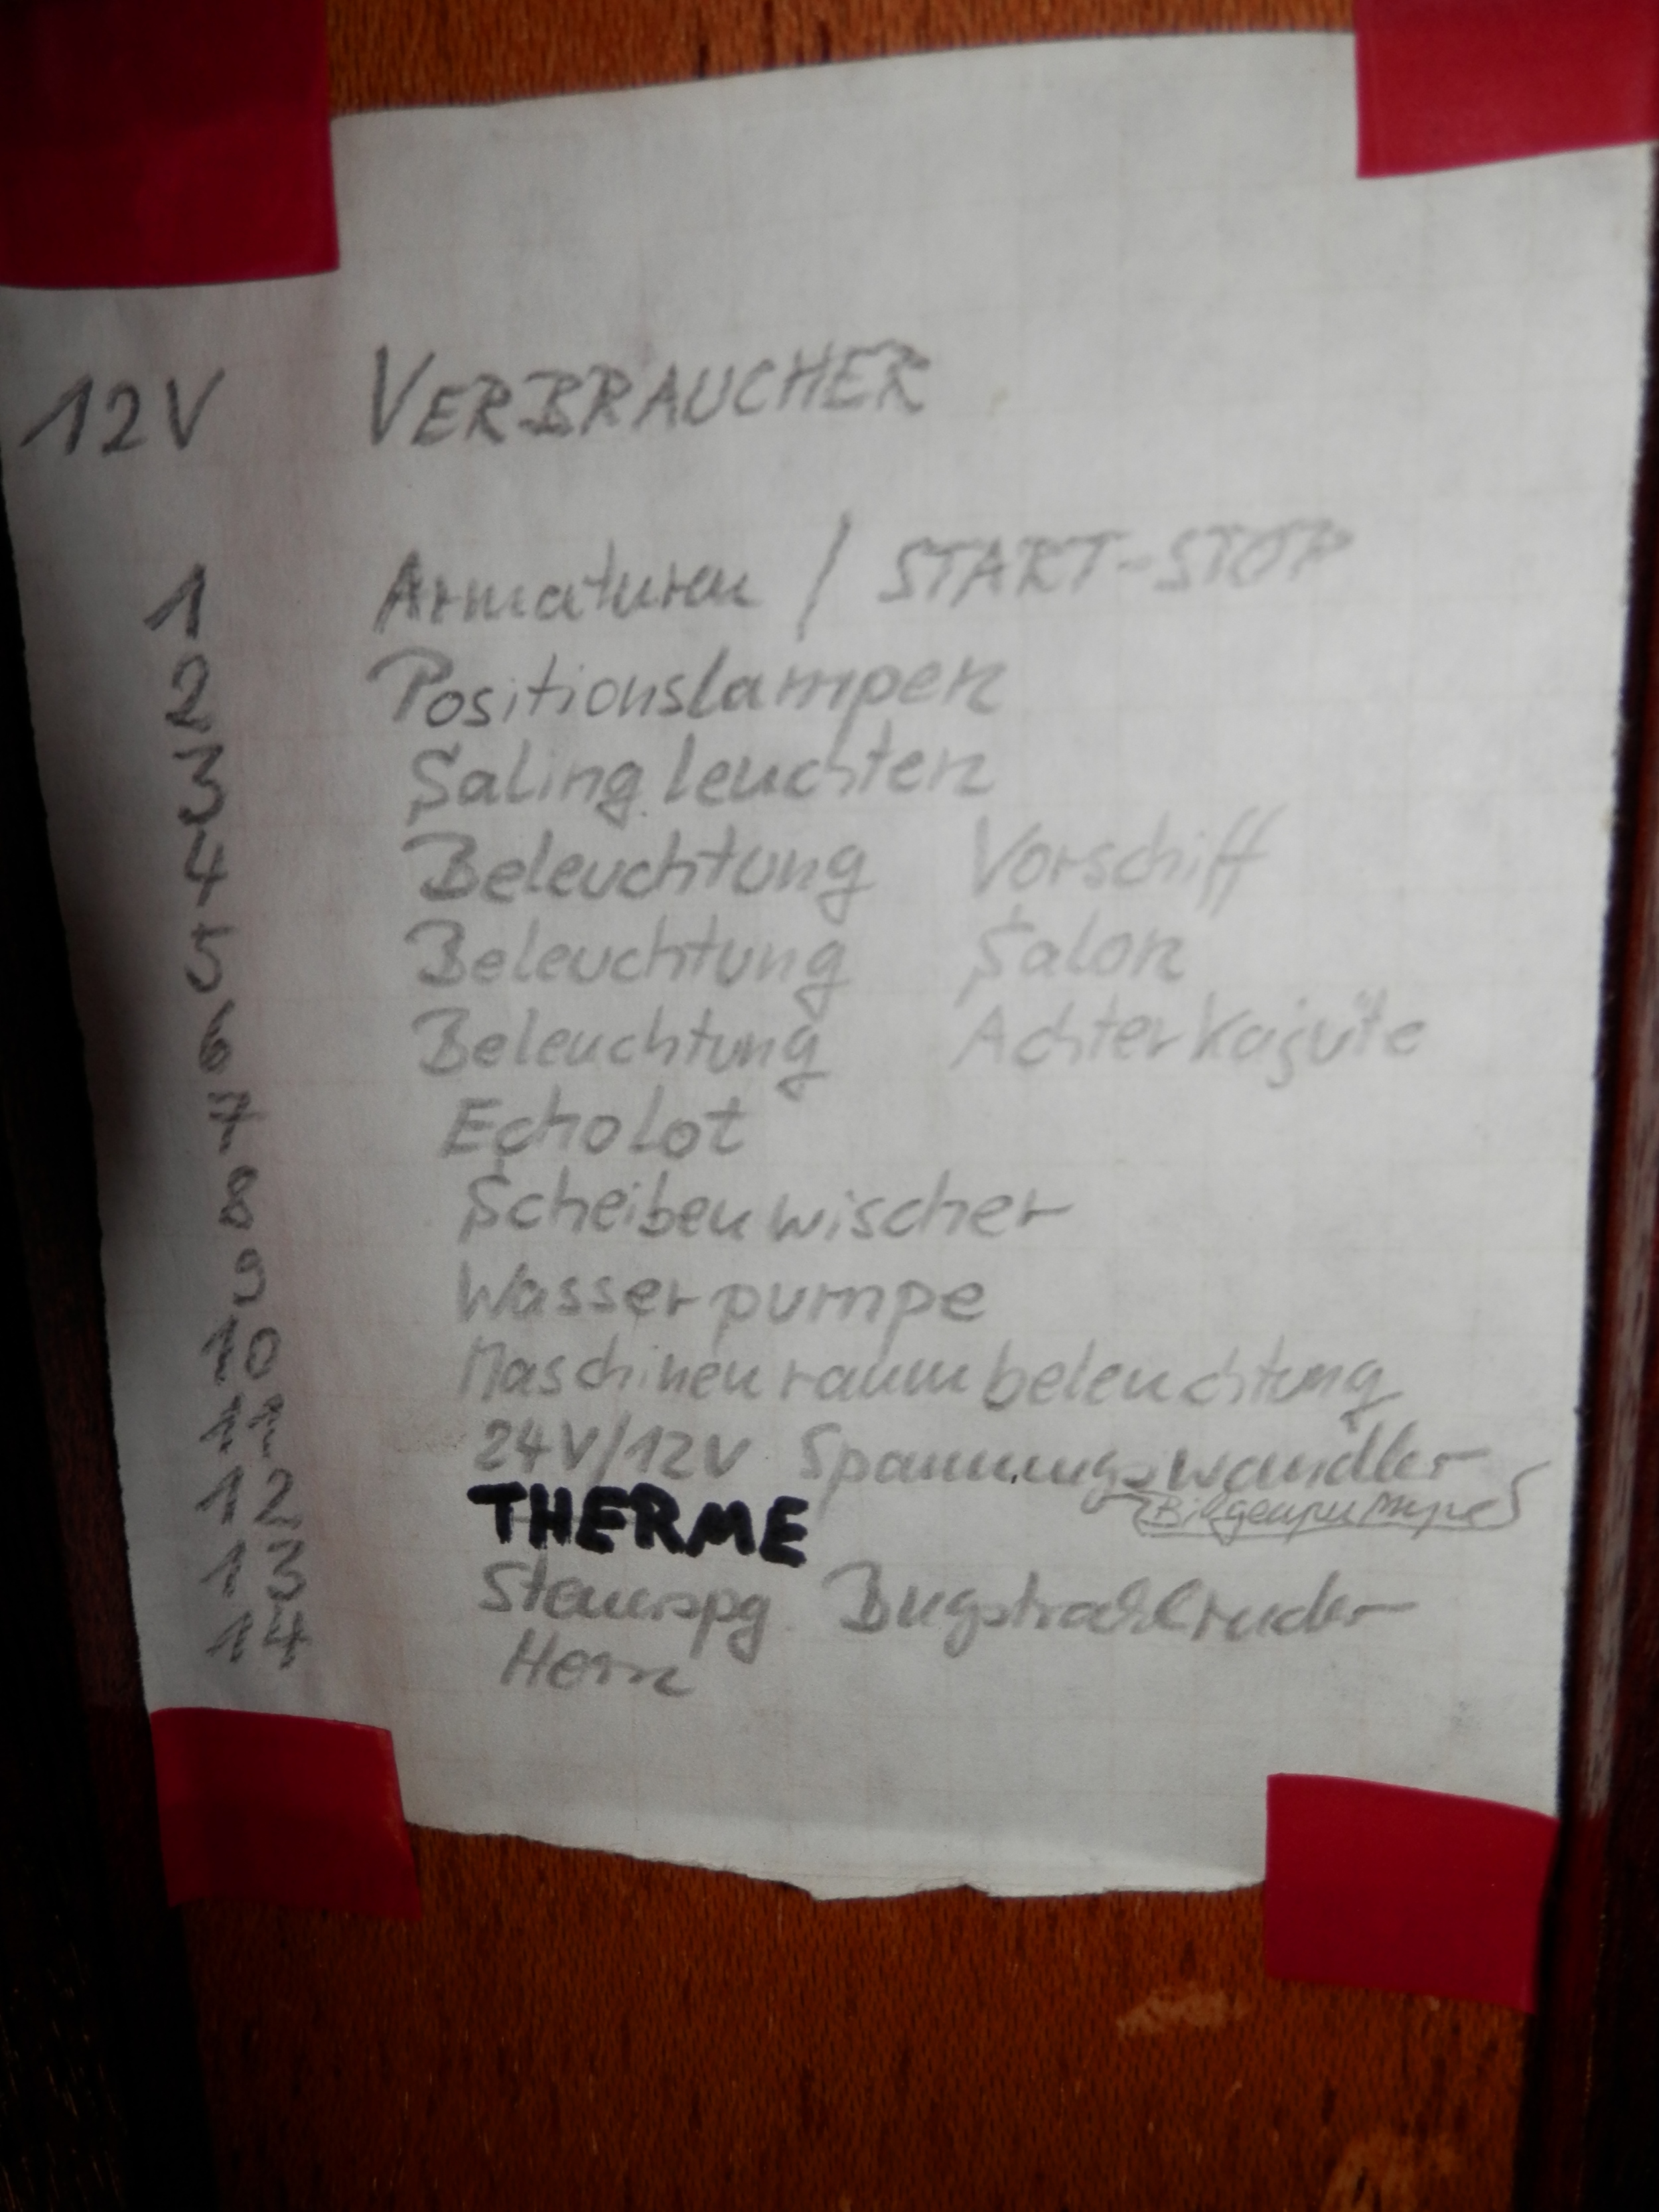 12V VERBRAUCHER
1 Armaturen / START-STOP
2 Positionslampen
3 Salingleuchten
4 Beleuchtung Vorschiff
5 Beleuchtung Salon
6 Beleuchtung Achterkajüte
7 Echolot
8 Scheibenwischer
9 Wasserpumpe
10 Maschinenraumbeleuchtung
11 24V/12V Spannungswandler
Bilgenpumpe
12 THERME
13 Steuerspg. Bugstrahlruder
14 Horn